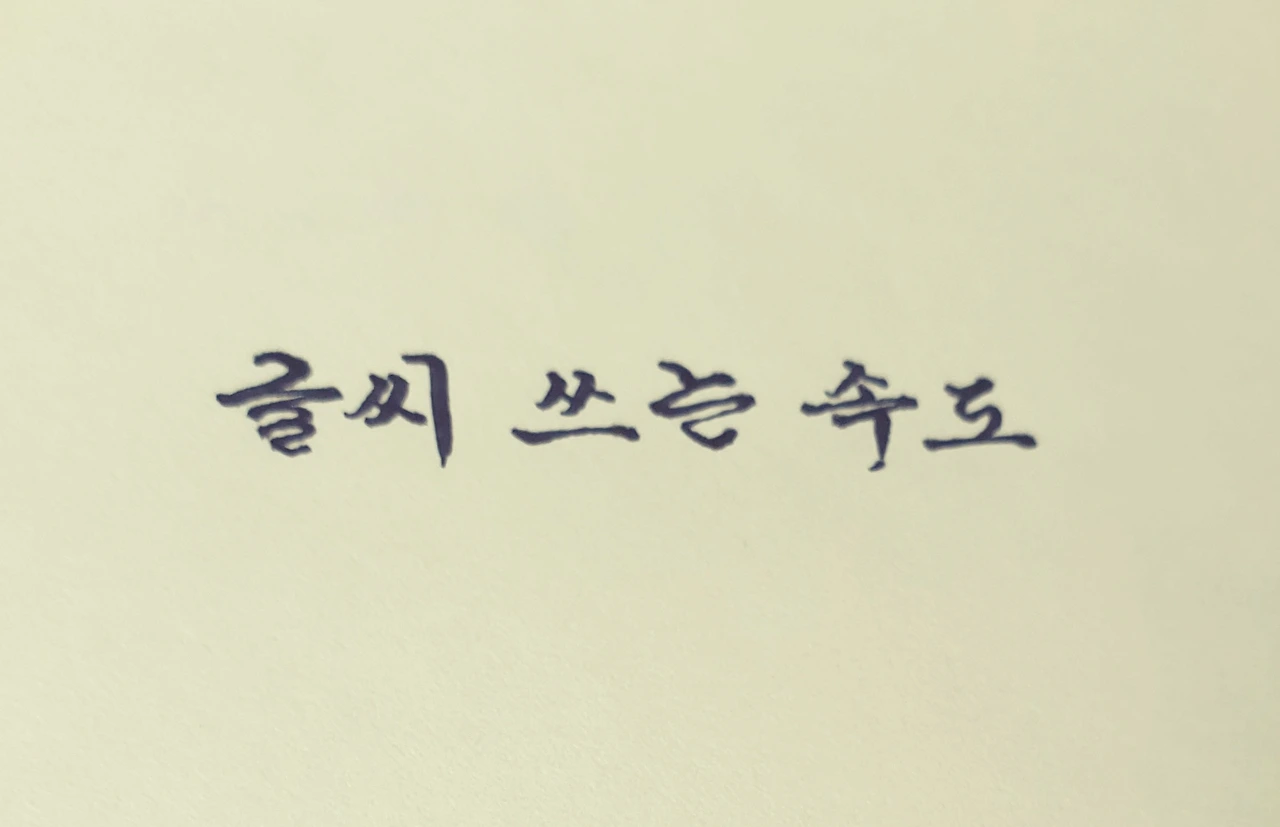 글씨 쓰는 속도